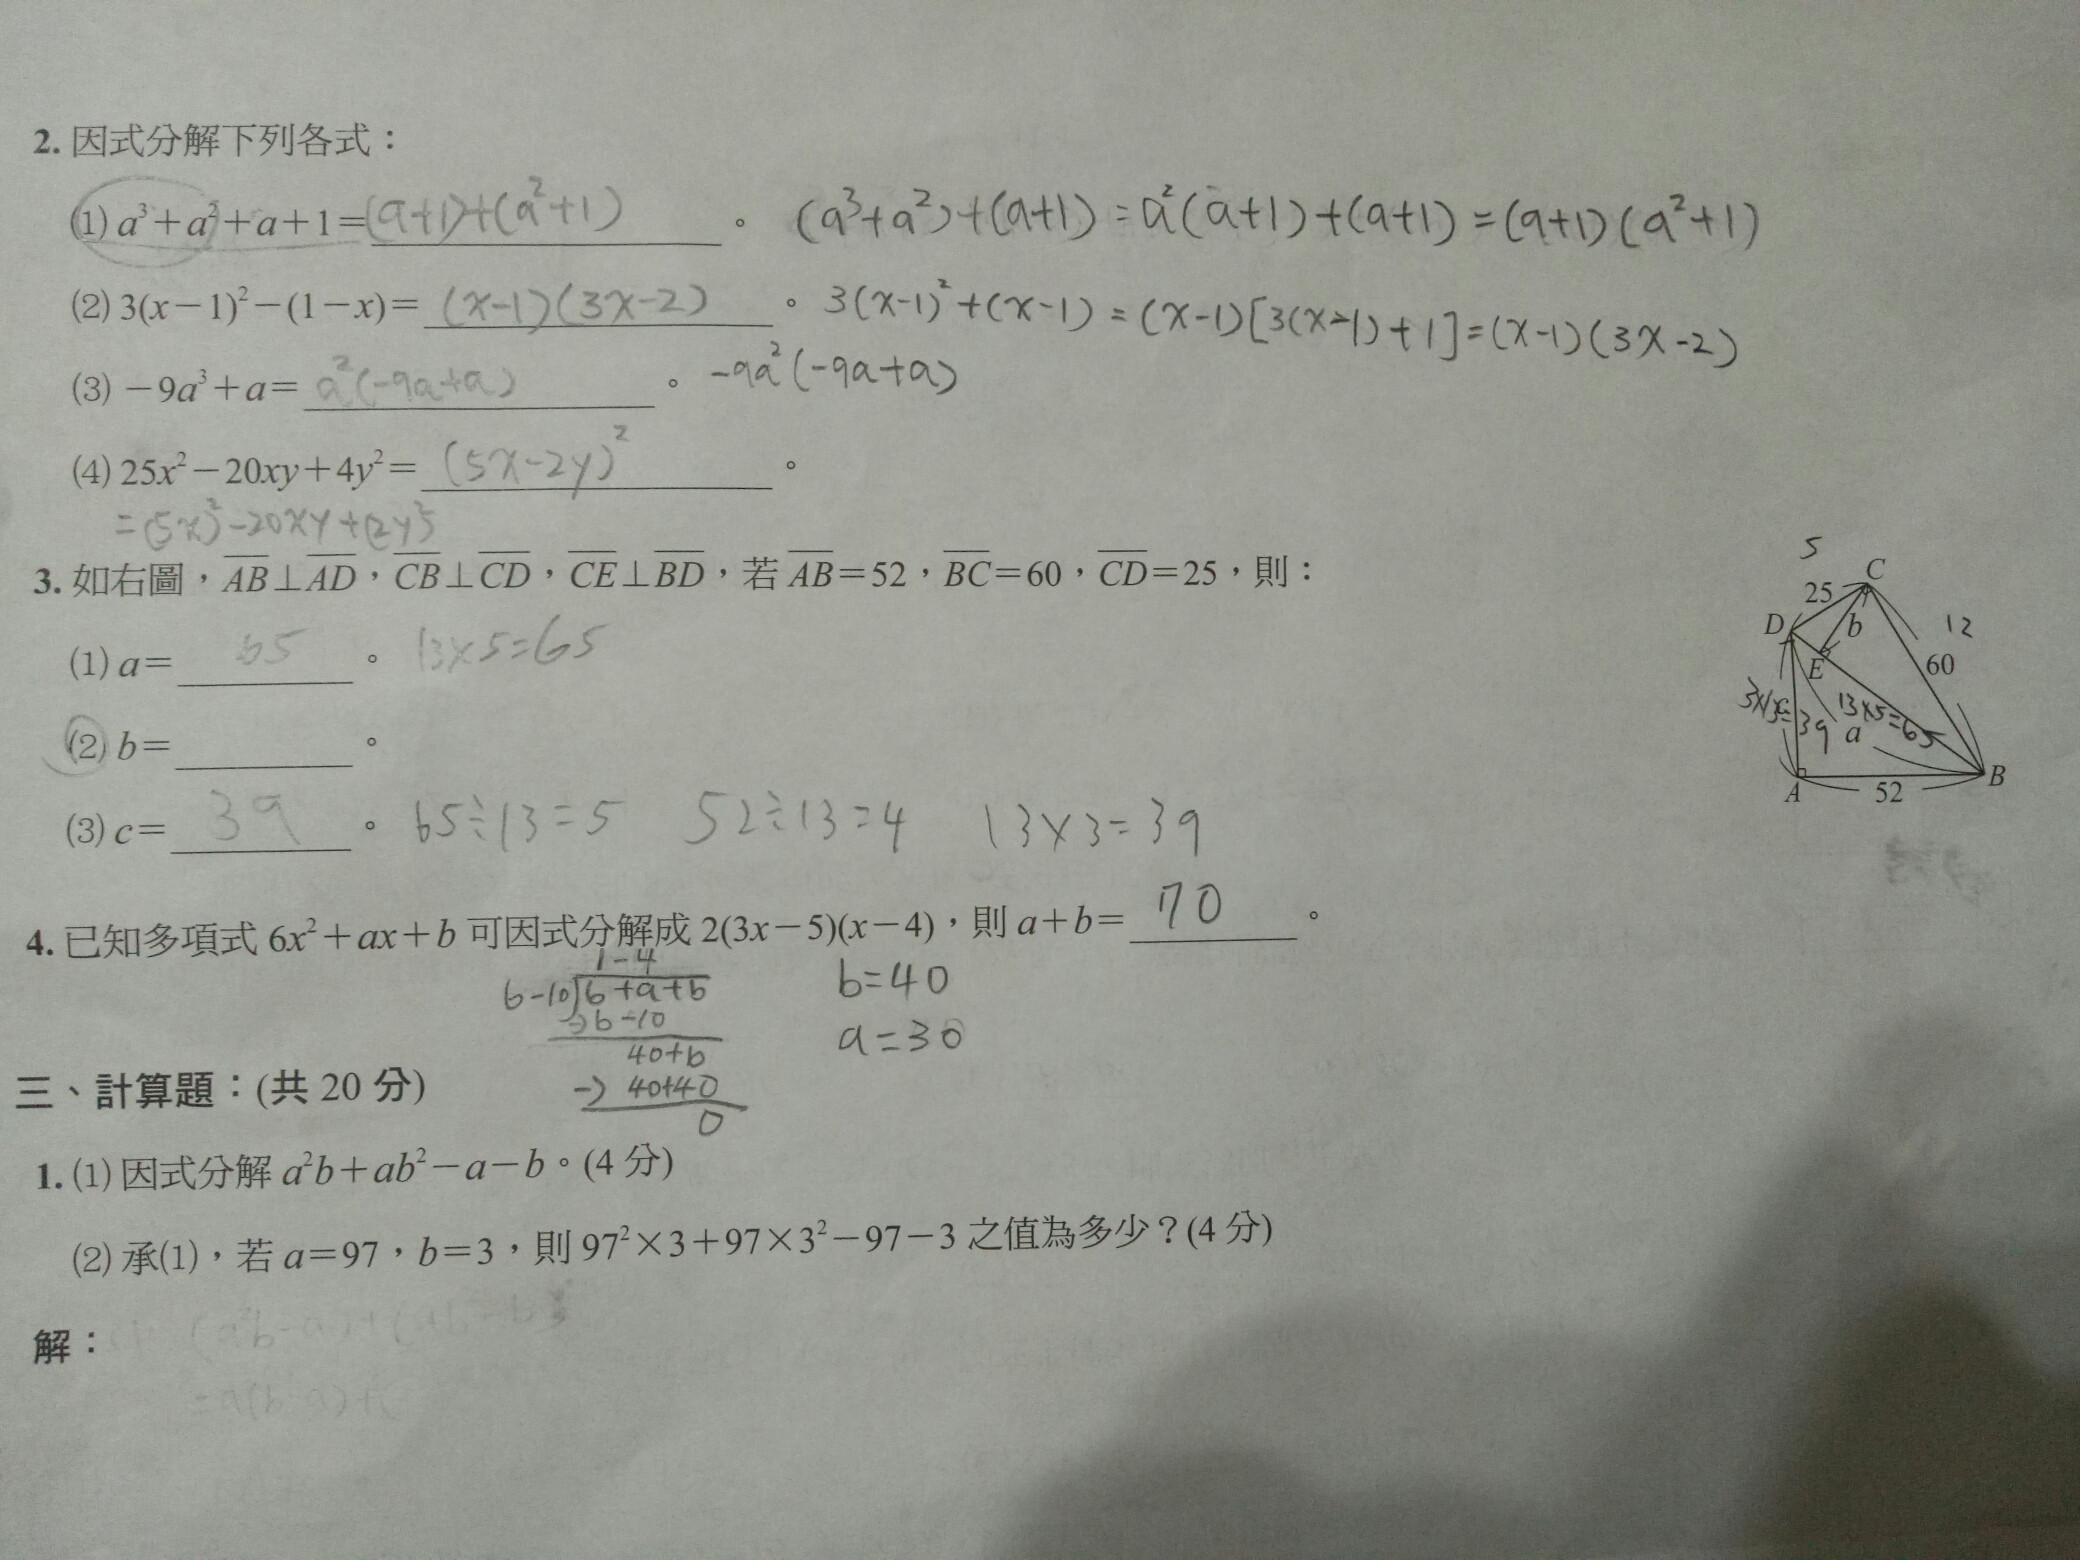 2. 因式分解下列各式：
(1) a³+a²+a+1=(a+1)+(a²+1)。 (a³+a²)+(a+1)=a²(a+1)+(a+1)=(a+1)(a²+1)
(2) 3(x−1)²−(1−x)=(x-1)(3x-2)。 3(x-1)²+(x-1)=(x-1)[3(x-1)+1]=(x-1)(3x-2)
(3) −9a³+a=a²(-9a+a)。 -9a²(-9a+a)
(4) 25x²−20xy+4y²=(5x-2y)²。
=(5x)²-20xy+(2y)²
3. 如右圖，AB⊥AD，CB⊥CD，CE⊥BD，若AB=52，BC=60，CD=25，則：
(1) a=65。 13×5=65
(2) b=。
(3) c=39。 65÷13=5 52÷13=4 13×3=39
5
C
25
D
b
12
E
60
3×13=39
13×5=65
a
A
52
B
4. 已知多項式 6x²+ax+b 可因式分解成 2(3x−5)(x−4)，則 a+b=70。
1-4
6-10)6+a+b
-)6-10
40+b
-)40+40
0
b=40
a=30
三、計算題：(共 20 分)
1. (1) 因式分解 a²b+ab²−a−b。(4 分)
(2) 承(1)，若 a=97，b=3，則 97²×3+97×3²−97−3 之值為多少？(4 分)
解：